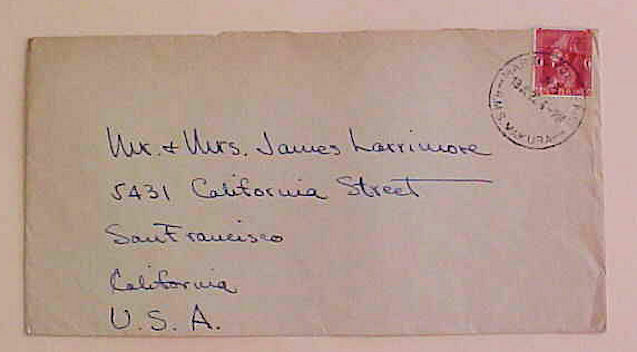 Mr. & Mrs. James Larrimore
5431 California Street
San Francisco
California
U. S. A.